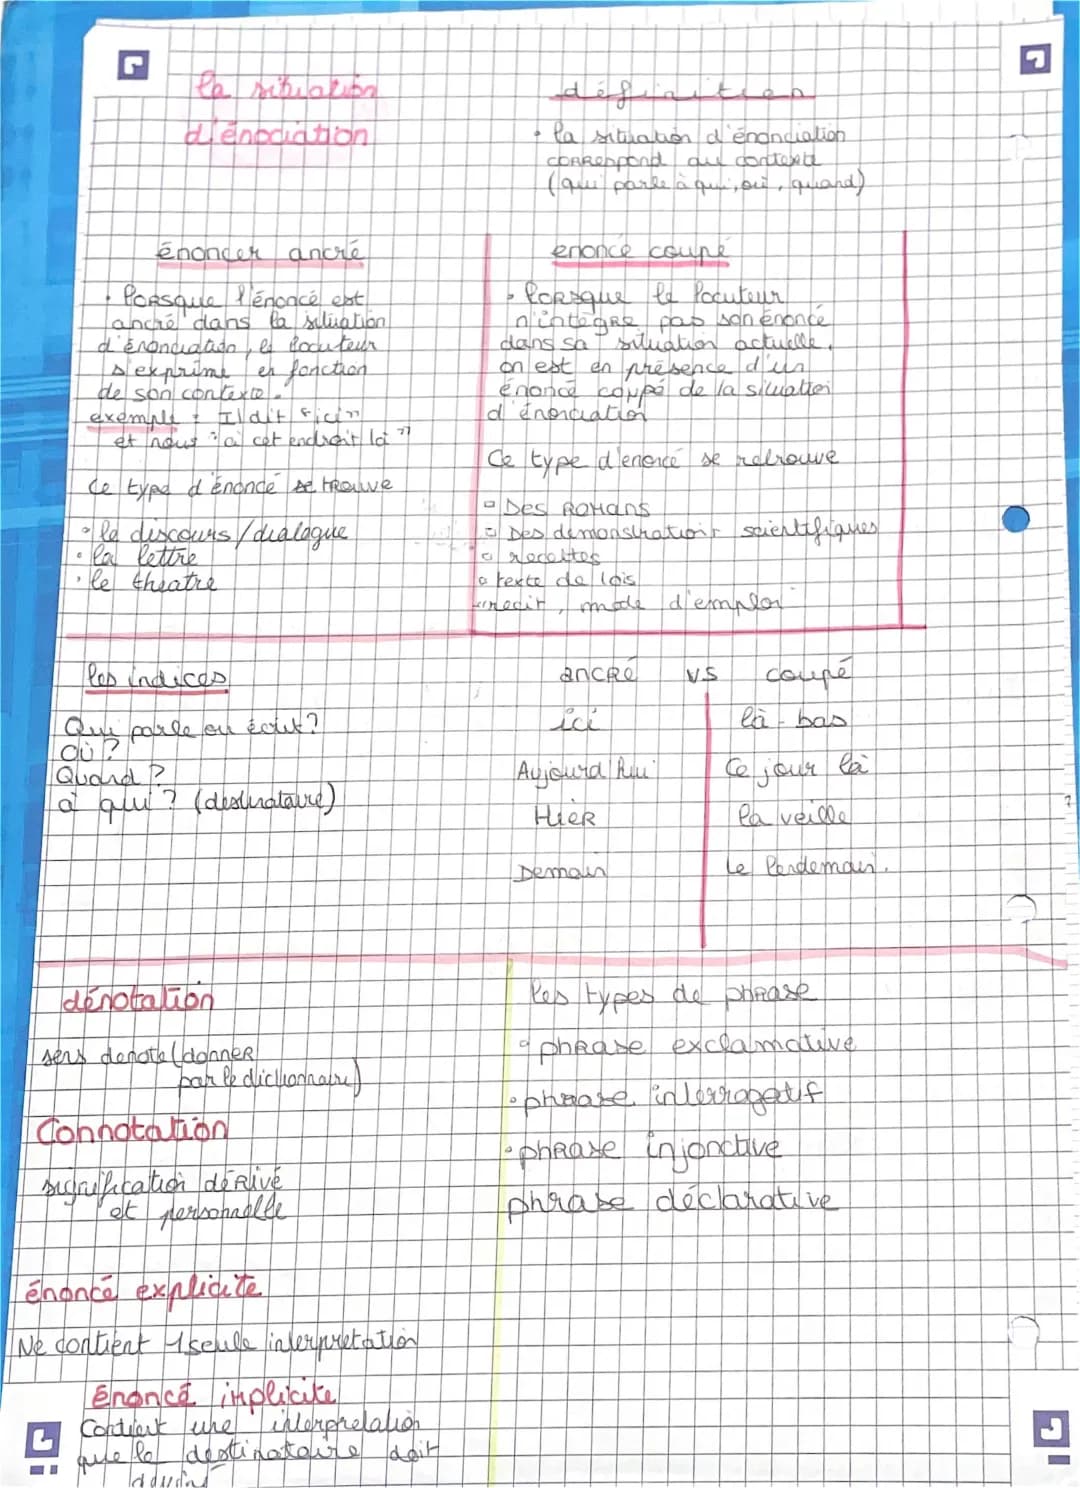 la situation
d'énociation
définition
• la situation d'énonciation
correspond au contexte
(qui parle à qui, où, quand)
énoncer ancré
• lorsque l'énoncé est
ancré dans la situation
d'énonciation, le locuteur
s'exprime en fonction
de son contexte.
exemple : Il dit "ici"
et nous "à cet endroit là"
Ce type d'énoncé se trouve
• le discours/dialogue
• la lettre
• le theatre
enoncé coupé
• lorsque le locuteur
n'intègre pas son énoncé
dans sa situation actuelle,
on est en présence d'un
énoncé coupé de la situation
d'énonciation
Ce type d'enoncé se retrouve
▫ Des Romans
▫ Des démonstrations scientifiques
▫ recettes
▫ texte de lois
recit, mode d'emploi
les indices
Qui parle ou écrit?
Où ?
Quand ?
à qui ? (destinataire)
ancré vs coupé
ici là-bas
Aujourd'hui Ce jour là
Hier la veille
Demain Le lendemain.
dénotation
sens denoté (donner
par le dictionnaire)
Connotation
signification dérivé
et personnelle
énoncé explicite
Ne contient 1 seule interpretation
énoncé implicite
Contient une interpretation
que le destinataire doit
les types de phrase
• phrase exclamative
• phrase interrogatif
• phrase injonctive
phrase déclarative